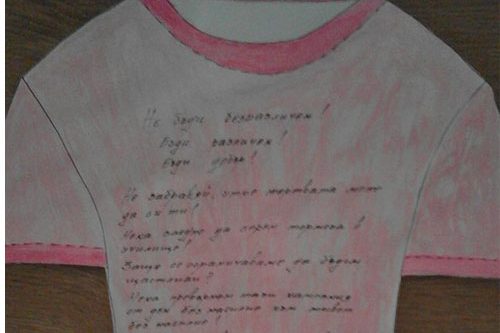 Не бъди безразличен!
Бъди различен!
Бъди добър!
Не забравяй, че жертвата може
да си ти!
Нека заедно да спрем тормоза в
училище!
Защо се ограничаваме да бъдем
щастливи?
Нека превърнем тази кампания
от ден без насилие към живот
без насилие!